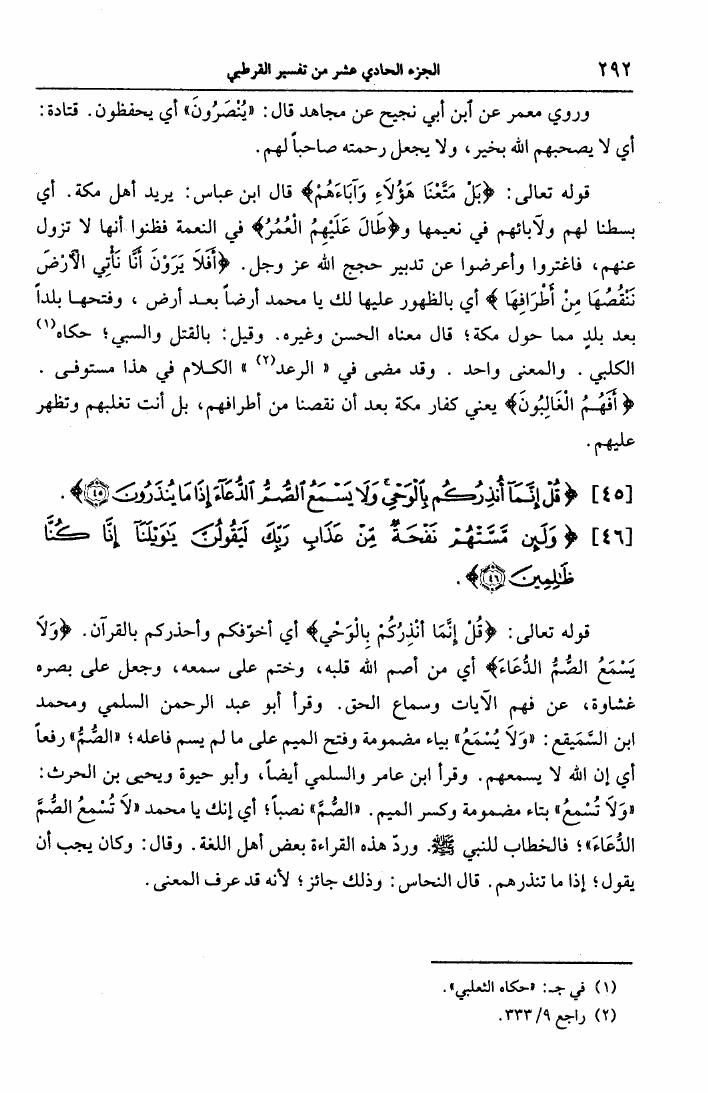 ٢٩٢ الجزء الحادي عشر من تفسير القرطبي
وروي معمر عن ٱبن أبي نجيح عن مجاهد قال: «يُنْصَرُونَ» أي يحفظون. قتادة:
أي لا يصحبهم الله بخير، ولا يجعل رحمته صاحباً لهم.
قوله تعالى: ﴿بَلْ مَتَّعْنَا هَؤُلَاءِ وَآبَاءَهُمْ﴾ قال ابن عباس: يريد أهل مكة. أي
بسطنا لهم ولآبائهم في نعيمها و﴿طَالَ عَلَيْهِمُ الْعُمُرُ﴾ في النعمة فظنوا أنها لا تزول
عنهم، فاغتروا وأعرضوا عن تدبير حجج الله عز وجل. ﴿أَفَلَا يَرَوْنَ أَنَّا نَأْتِي الْأَرْضَ
نَنْقُصُهَا مِنْ أَطْرَافِهَا ﴾ أي بالظهور عليها لك يا محمد أرضاً بعـد أرض ، وفتحهـا بلداً
بعد بلدٍ مما حول مكة؛ قال معناه الحسن وغيره. وقيل: بالقتل والسبي؛ حكاه(١)
الكلبي . والمعنى واحد . وقد مضى في « الرعد(٢) » الكـلام في هذا مستوفـى .
﴿ أَفَهُـمُ الْغَالِبُونَ﴾ يعني كفار مكة بعد أن نقصنا من أطرافهم، بل أنت تغلبهم وتظهر
عليهم.
[٤٥] ﴿ قُلْ إِنَّمَآ أُنذِرُكُم بِٱلْوَحْيِ ۚ وَلَا يَسْمَعُ ٱلصُّمُّ ٱلدُّعَآءَ إِذَا مَا يُنذَرُونَ ٤٥﴾.
[٤٦] ﴿ وَلَئِن مَّسَّتْهُمْ نَفْحَةٌ مِّنْ عَذَابِ رَبِّكَ لَيَقُولُنَّ يَٰوَيْلَنَآ إِنَّا كُنَّا
ظَٰلِمِينَ ٤٦﴾.
قوله تعالى: ﴿قُلْ إِنَّمَا أُنْذِرُكُمْ بِالْوَحْيِ﴾ أي أخوّفكم وأحذركم بالقرآن. ﴿وَلَا
يَسْمَعُ الصُّمُّ الدُّعَاءَ﴾ أي من أصم الله قلبه، وختم على سمعه، وجعل على بصره
غشاوة، عن فهم الآيات وسماع الحق. وقرأ أبو عبد الرحمن السلمي ومحمد
ابن السَّمَيقع: «وَلَا يُسْمَعُ» بياء مضمومة وفتح الميم على ما لم يسم فاعله؛ «الصُّمُّ» رفعاً
أي إن الله لا يسمعهم. وقرأ ابن عامر والسلمي أيضاً، وأبو حيوة ويحيى بن الحرث:
«وَلَا تُسْمِعُ» بتاء مضمومة وكسر الميم. «الصُّمَّ» نصباً؛ أي إنك يا محمد «لَا تُسْمِعُ الصُّمَّ
الدُّعَاءَ»؛ فالخطاب للنبي ﷺ. وردّ هذه القراءة بعض أهل اللغة. وقال: وكان يجب أن
يقول؛ إذا ما تنذرهم. قال النحاس: وذلك جائز؛ لأنه قد عرف المعنى.
(١) في جـ: «حكاه الثعلبي».
(٢) راجع ٩/ ٣٣٣.